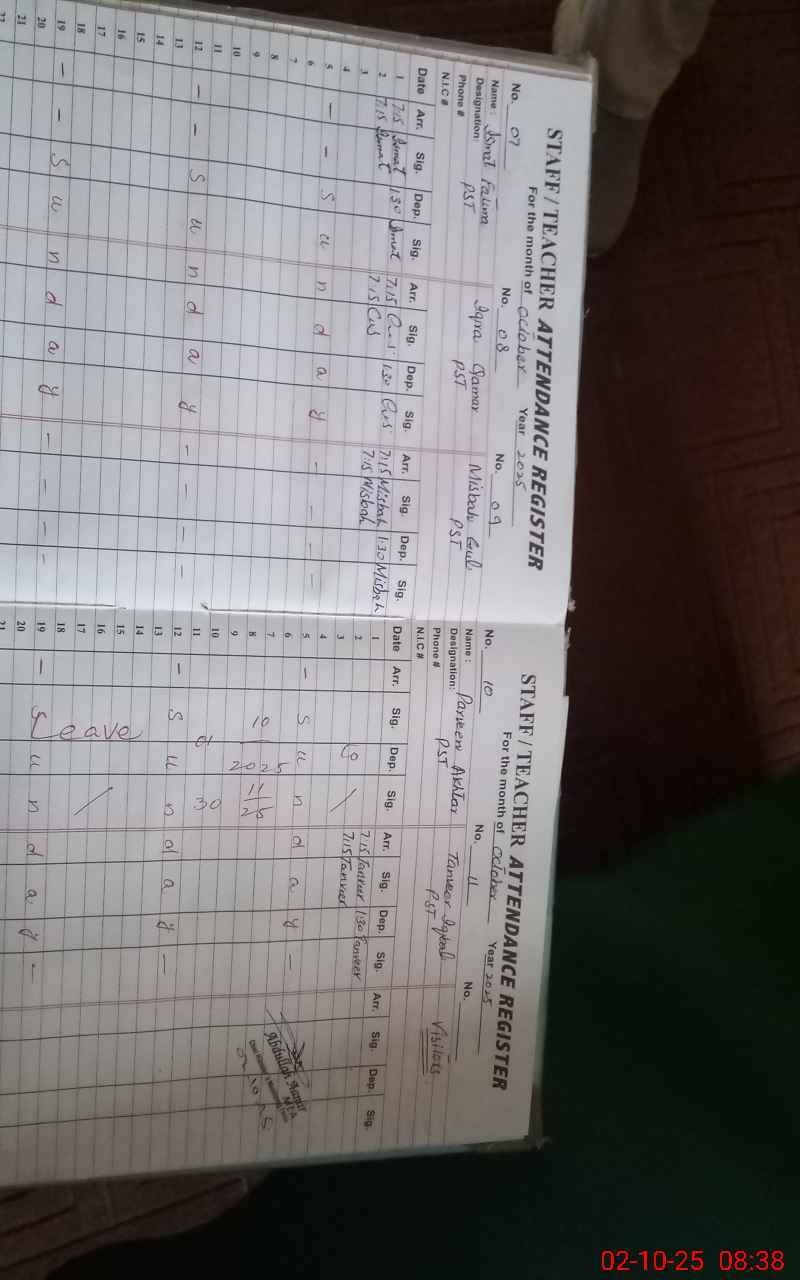 STAFF / TEACHER ATTENDANCE REGISTER
For the month of October Year 2025
No. 07 No. 08 No. 09
Name: Ismat Fatima Iqra Qamar Misbah Gul
Designation: PST PST PST
Phone #
N.I.C #
Date Arr. Sig. Dep. Sig. Arr. Sig. Dep. Sig. Arr. Sig. Dep. Sig.
1 7:15 Ismat 1:30 Ismat 7:15 1:30 7:15 Misbah 1:30 Misbah
2 7:15 Ismat 7:15 7:15 Misbah
3
4
5 - - S u n d a y - - -
6
7
8
9
10
11
12 - - S u n d a y - - - -
13
14
15
16
17
18
19 - - S u n d a y - - - -
20
21
22
STAFF / TEACHER ATTENDANCE REGISTER
For the month of October Year 2025
No. 10 No. 11 No.
Name: Parveen Akhtar Tanveer Iqbal Visitors
Designation: PST PST
Phone #
N.I.C #
Date Arr. Sig. Dep. Sig. Arr. Sig. Dep. Sig. Arr. Sig. Dep. Sig.
1 7:15 Tanveer 1:30 Tanveer
2 7:15 Tanveer
3
4
5 - S u n d a y -
6
7
8 10 2025 11/25
9
10
11 30
12 - S u n d a y -
13
14
15
16
17 Leave
18
19 - S u n d a y -
20
21
Abdullah
MEA
02-10-25 08:38